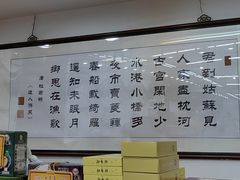 君到姑蘇見
人家盡枕河
古宮閒地少
水港小橋多
夜市賣菱藕
春船載綺羅
遥知未眠月
鄉思在漁歌
唐杜荀鶴